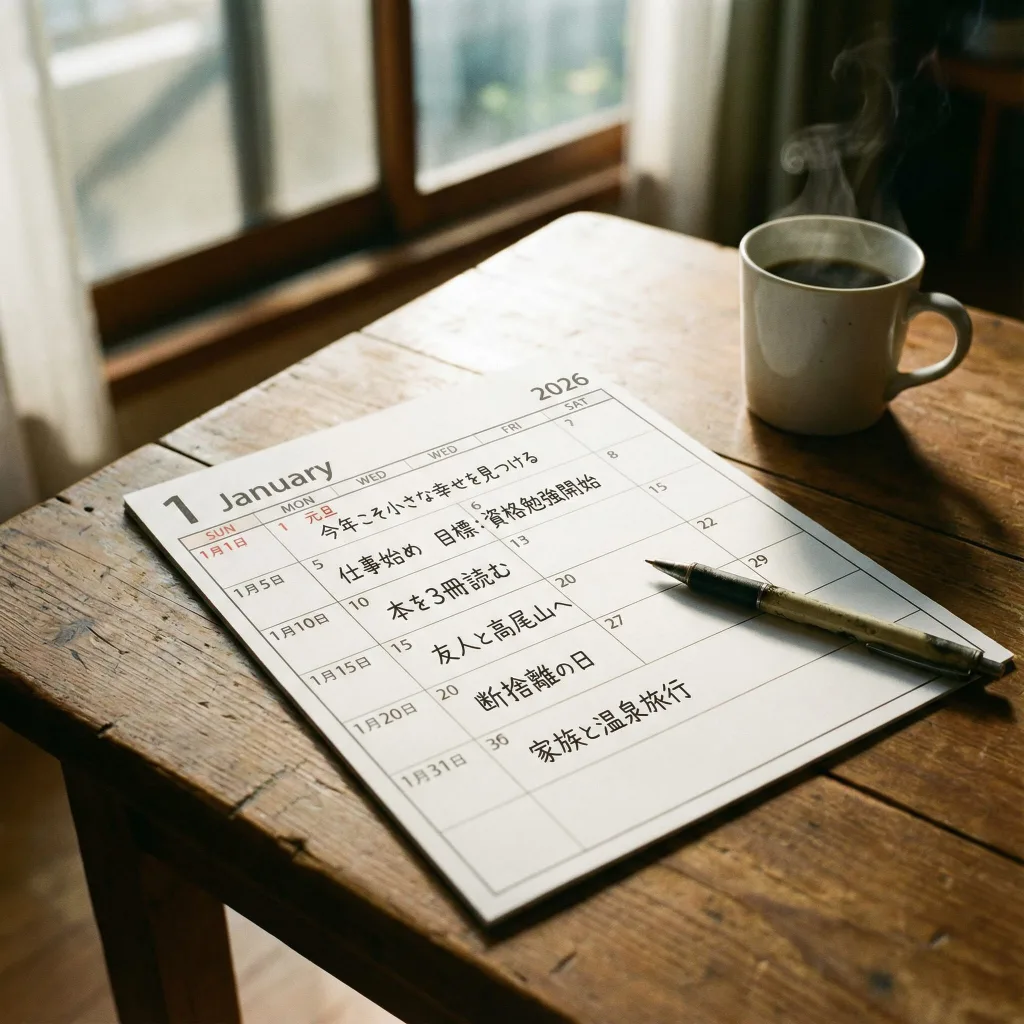 2026
1 January
SUN MON WED WED FRI SAT
1月1日 1 元旦 今年こそ小さな幸せを見つける 7
1月5日 5 仕事始め 目標:資格勉強開始 6 8
1月10日 10 本を3冊読む 13 15
1月15日 15 友人と高尾山へ 20 22
1月20日 20 断捨離の日 27 29
1月31日 36 家族と温泉旅行